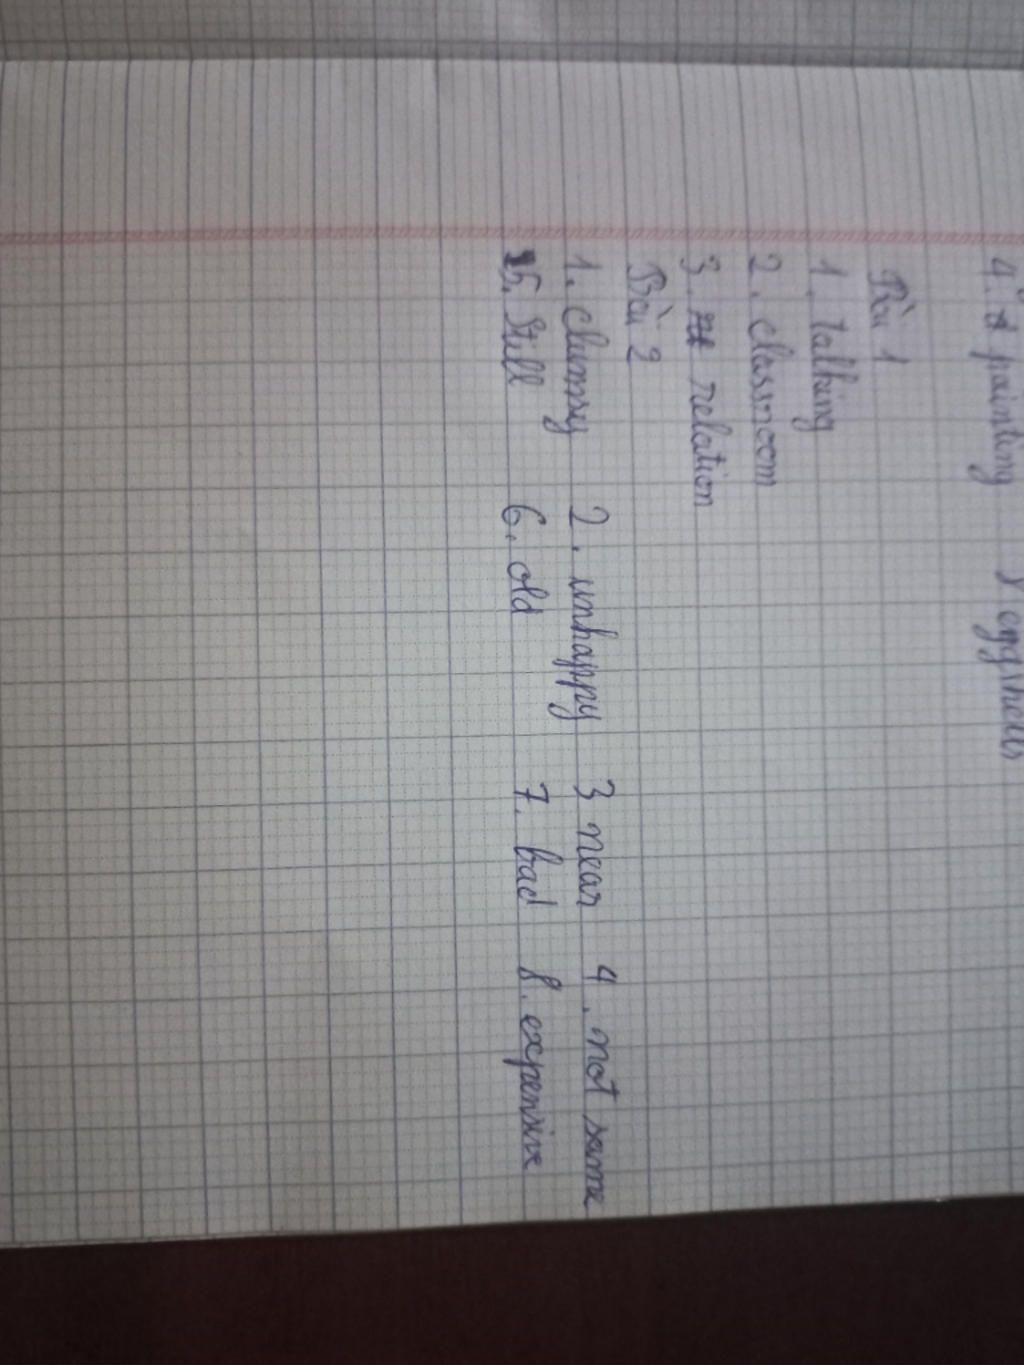 4. painting 8 eggshells
Bài 1
1. talking
2. classroom
3. relation
Bài 2
1. clumsy 2. unhappy 3 near 4. not same
5. still 6. old 7. bad 8. expensive